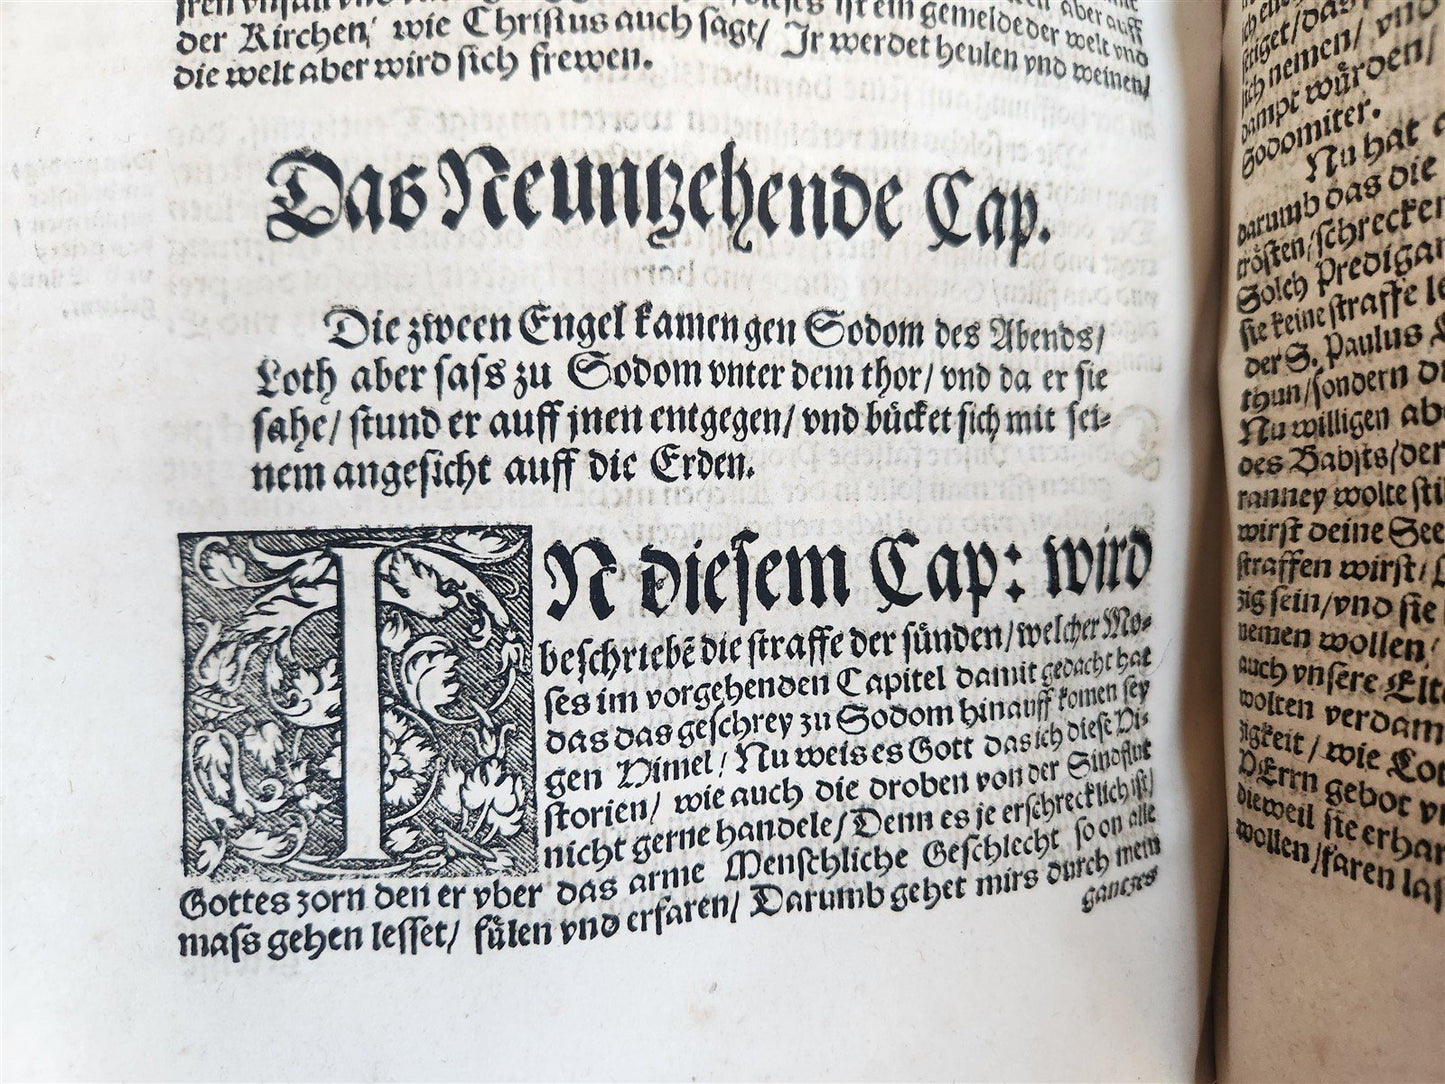 der Kirchen, wie Christus auch sagt/ Jr werdet heulen vnd weinen/
die welt aber wird sich frewen.
Das Neuntzehende Cap.
Die zween Engel kamen gen Sodom des Abends/
Loth aber sass zu Sodom vnter dem thor/ vnd da er sie
sahe/ stund er auff jnen entgegen/ vnd bücket sich mit sei-
nem angesicht auff die Erden.
IN diesem Cap: wird
beschriebē die straffe der sünden/ welcher Mo-
ses im vorgehenden Capitel damit gedacht hat
das das geschrey zu Sodom hinauff komen sey
gen Himel/ Nu weis es Gott das ich diese Hi-
storien/ wie auch die droben von der Sindflut
nicht gerne handele/ Denn es je erschrecklich ist/
Gottes zorn den er vber das arme Menschliche Geschlecht so on alle
mass gehen lesset/ fülen vnd erfaren/ Darumb gehet mirs durch mein
gantzes
dampt würden/
Sodomiter.
Nu hat
darumb das die
trösten/ schrecken
Solch Predigam
sie keine straffe
der S. Paulus
thun/ sondern
Nu willigen
des Babsts/ der
ranney wolte
wirst deine
straffen wirst/
zig sein/ vnd sie
nemen wollen/
auch vnsere
wolten
zigkeit/ wie
HErrn gebot
dieweil sie
wollen/ faren